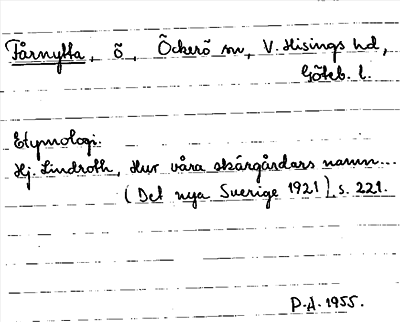 Fårnytta, ö, Öckerö sn, V. Hisings hd,
Göteb. l.
Etymologi.
Hj. Lindroth, Hur våra skärgårdars namn...
(Det nya Sverige 1921), s. 221.
P.H. 1955.